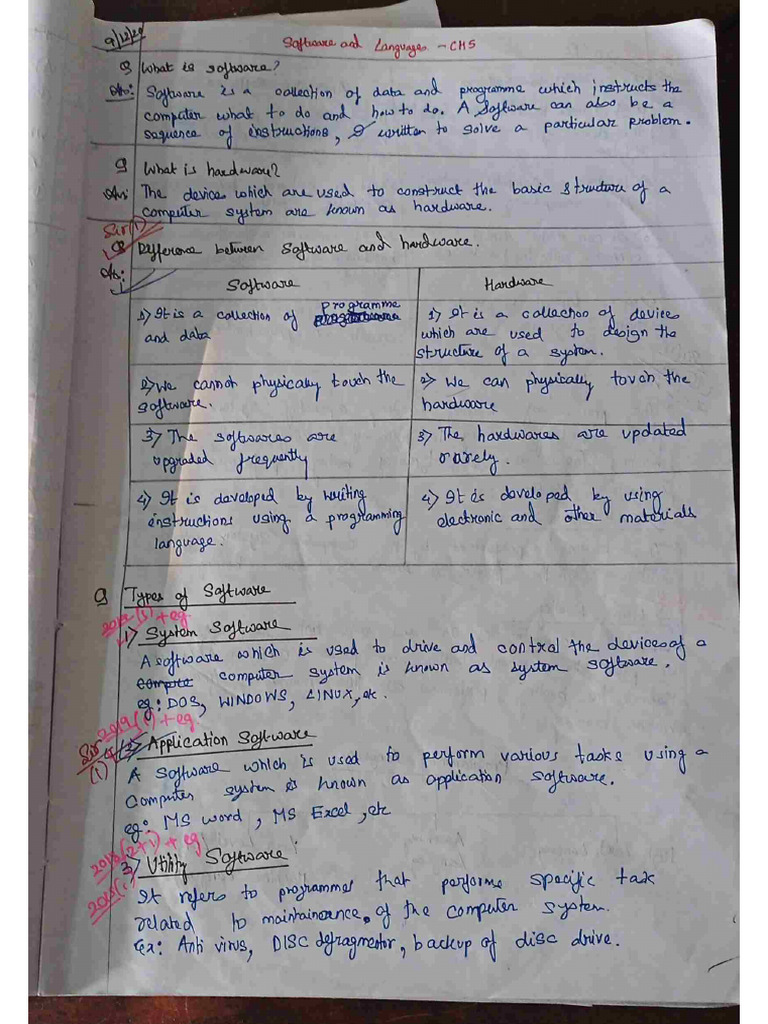 9/12/20
Software and Languages - CH5
Q What is software?
Ans: Software is a collection of data and programme which instructs the
computer what to do and how to do. A Software can also be a
sequence of instructions, written to solve a particular problem.
Q What is hardware?
Ans: The device which are used to construct the basic structure of a
computer system are known as hardware.
Sir(1)
Q Difference between Software and hardware.
Ans:
Software
1) It is a collection of programme
and data
2) We cannot physically touch the
software.
3) The softwares are
upgraded frequently
4) It is developed by writing
instructions using a programming
language.
Hardware
1) It is a collection of devices
which are used to design the
structure of a system.
2) We can physically touch the
hardware
3) The hardwares are updated
rarely.
4) It is developed by using
electronic and other materials
Q Types of Software
+ eg
1) System Software
A software which is used to drive and control the devices of a
compute computer system is known as system software.
eg: DOS, WINDOWS, LINUX, etc.
2019(1) + eg
Sir
(1)
2) Application Software
A software which is used to perform various tasks using a
computer system is known as application software.
eg: MS word, MS Excel, etc
2018(2+1) + eg
3) Utility Software
It refers to programmes that performs specific task
related to maintainence of the computer system.
Ex: Anti virus, DISC defragmentor, backup of disc drive.